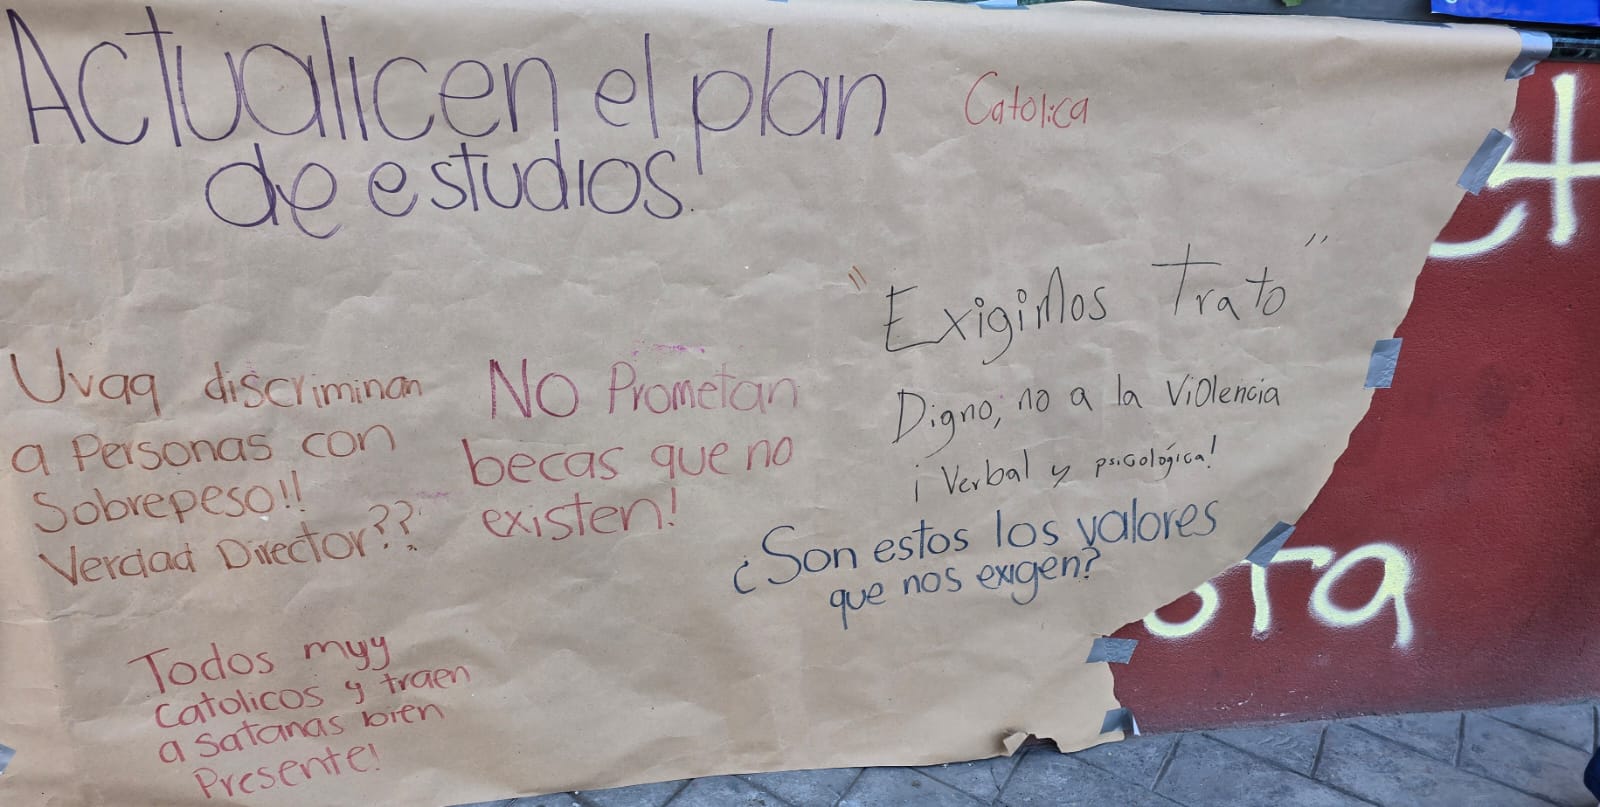 Actualicen el plan
de estudios.
Catolica
"Exigimos Trato"
Digno, no a la Violencia
¡Verbal y psicológica!
Uvaq discriminan
a Personas con
Sobrepeso!!
Verdad Director??
NO Prometan
becas que no
existen!
¿Son estos los valores
que nos exigen?
Todos myy
catolicos y traen
a satanas bien
Presente!